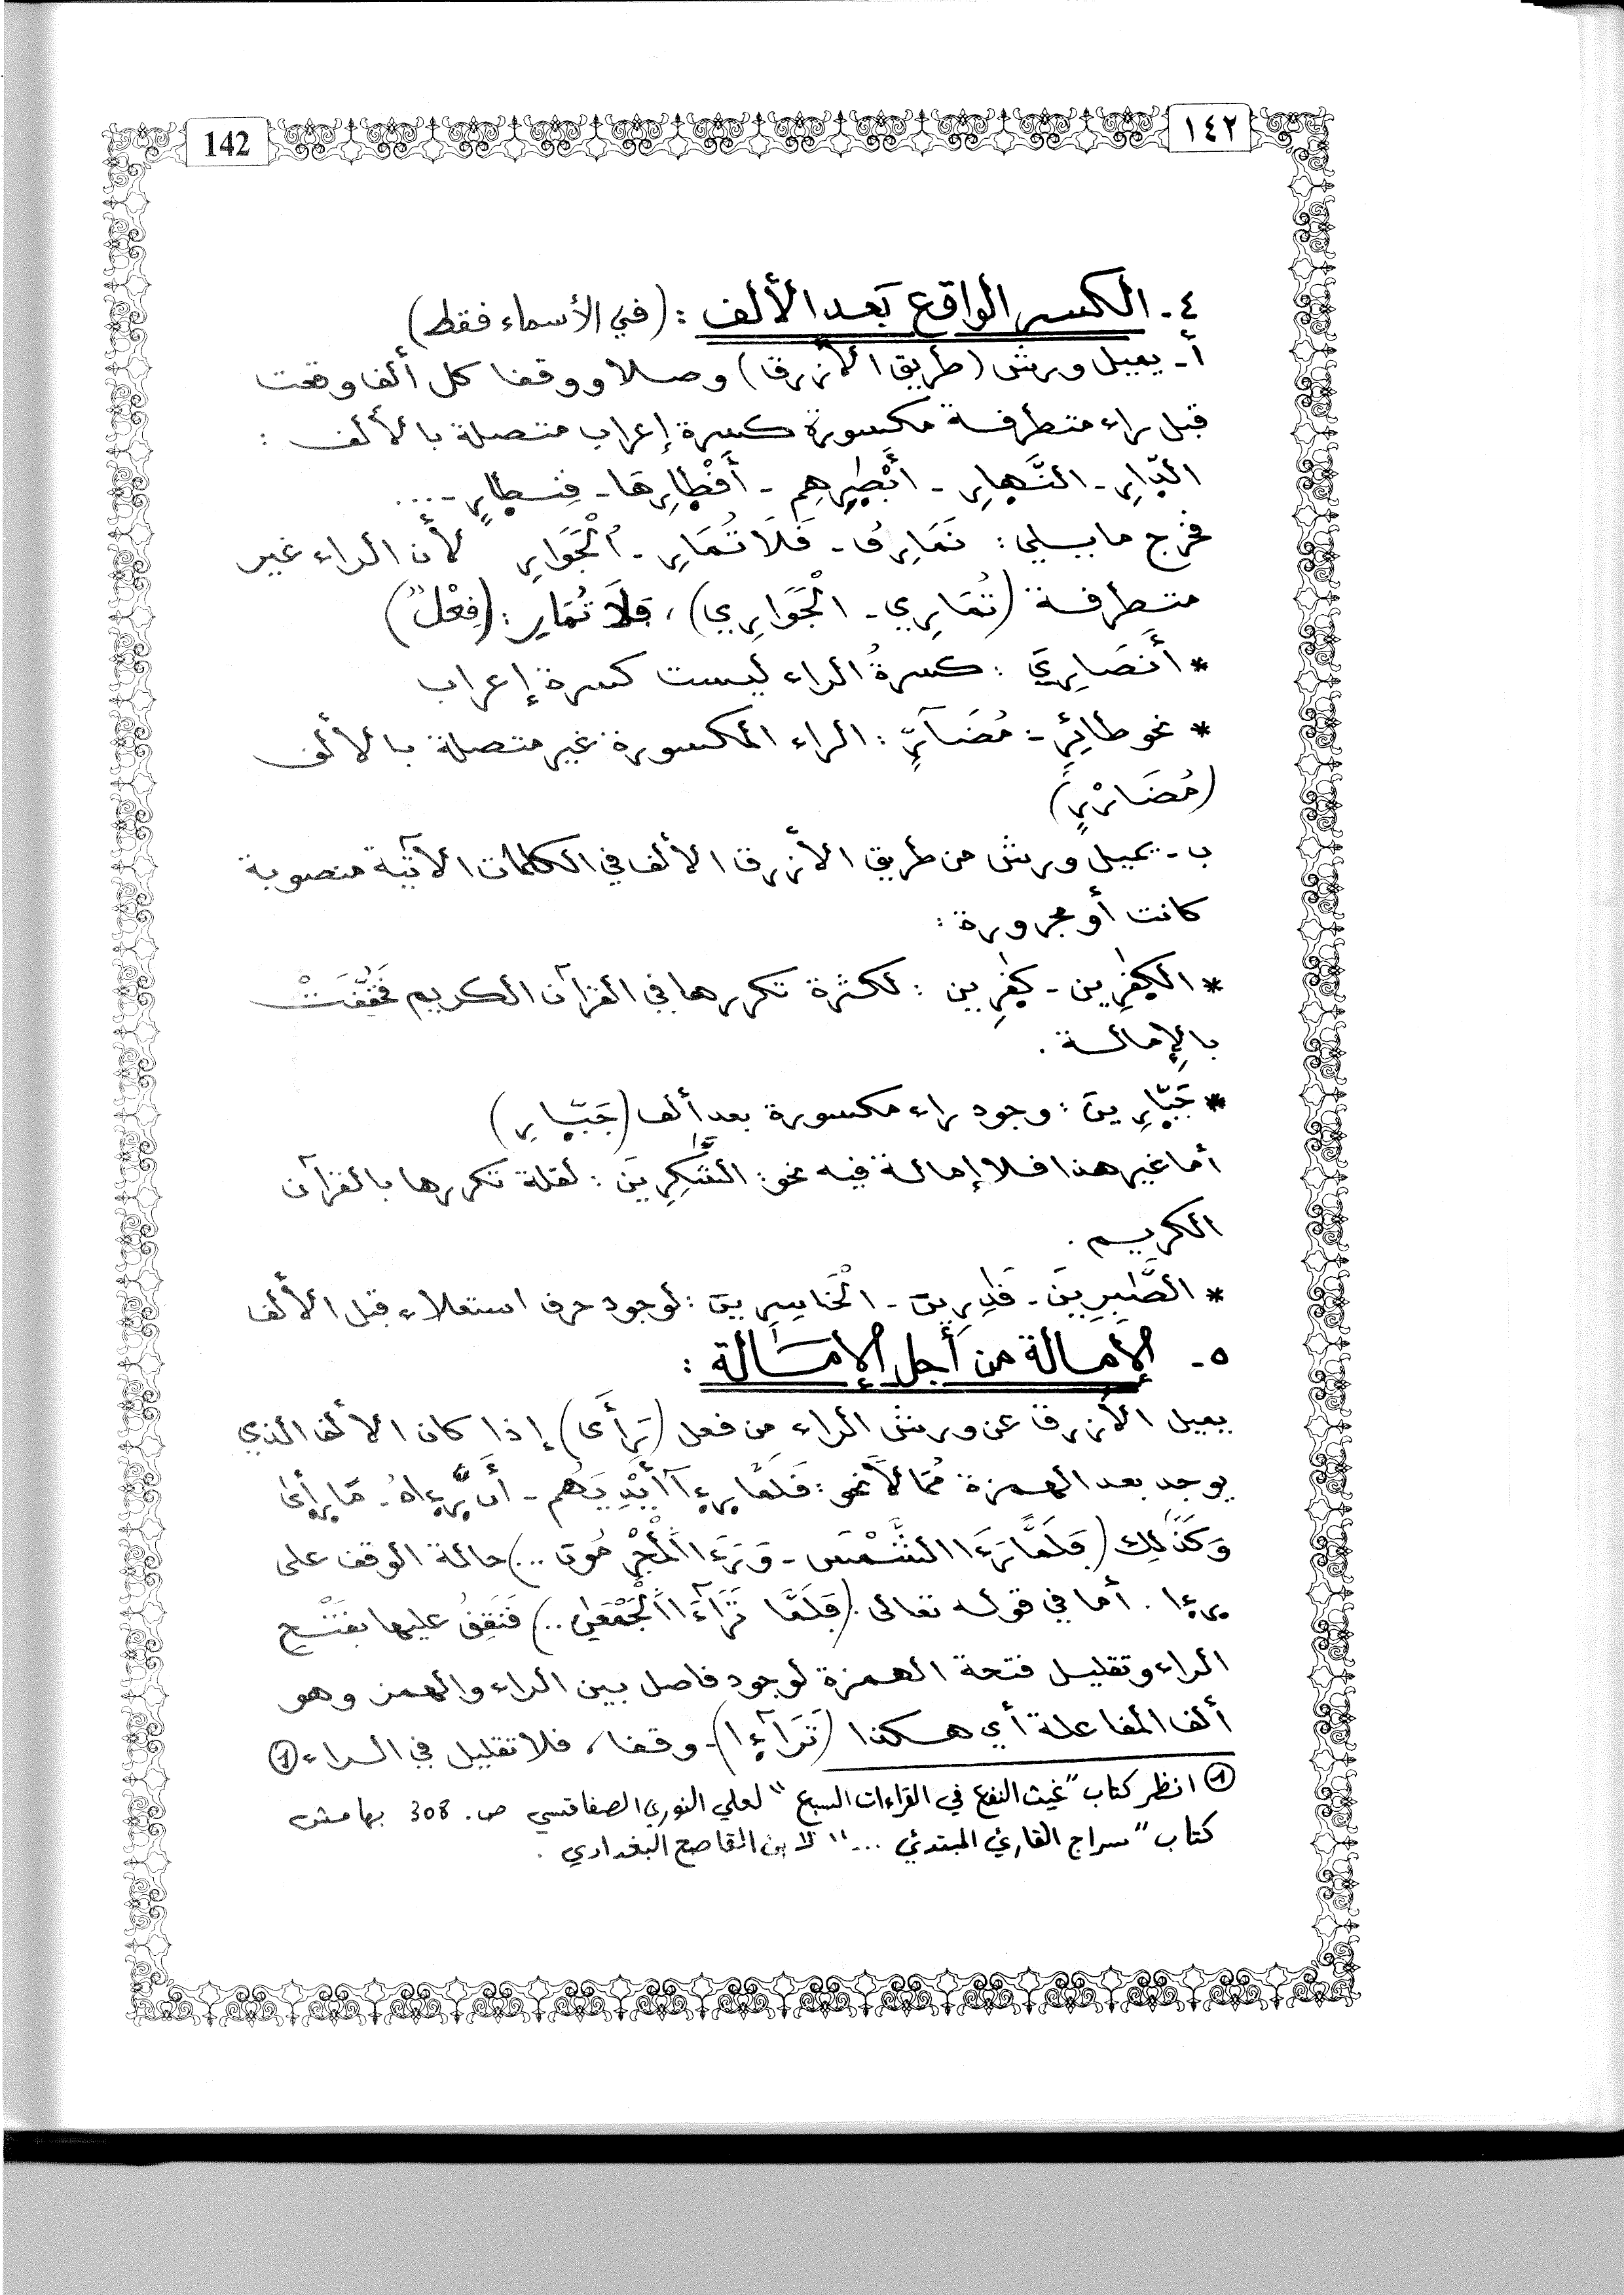 142
١٤٢
٤ - الكسر الواقع بَعد الألف : (في الأسماء فقط)
أ - يميل ورش (طريق الأزرق) وصلا ووقفا كل ألف وقعت
قبل راء متطرفة مكسورة كسرة إعراب متصلة بالألف :
الدّارِ - النَّهارِ - أَبْصٰرِهِم - أَقْطارِها - قِنطارٍ - ...
فخرج ما يلي : نَمَارِقُ - فَلَا تُمَارِ - اُلْجَوَارِ لأن الراء غير
متطرفة (تُمَارِي - الْجَوَارِي) ، فَلَا تُمَارِ : (فِعْلٌ)
* أَنصَارِيَ : كسرةُ الراء ليست كسرة إعراب
* نحو طائِرٍ - مُضَآرٍّ : الراء المكسورة غير متصلة بالألف
(مُضَارْرٍ)
ب - يميل ورش من طريق الأزرق الألف في الكلمات الآتية منصوبة
كانت أو مجرورة :
* الكٰفِرِين - كٰفِرِين : لكثرة تكررها في القرآن الكريم فَخُفِّفَتْ
بالإمالة .
* جَبّارِينَ : وجود راء مكسورة بعد ألف (جَبّارِ)
أما غير هذا فلا إمالة فيه نحو : الشَّٰكِرِينَ : لقلة تكررها بالقرآن
الكريم .
* الصَّٰبِرِينَ - قَٰدِرِينَ - الْخَاسِرِينَ : لوجود حرف استعلاء قبل الألف
٥ - الإمالة من أجل الإمَالة :
يميل الأزرق عن ورش الراء من فعل (رَأَى) إذا كان الألف الذي
يوجد بعد الهمزة مُمَالاً نحو : فَلَمَّا رءٜآ أَيْدِيَهُم - أَن رَّءاهُ - مَا رأىٰ
وَكَذَٰلِكَ (فَلَمَّا رَءَا الشَّمْسَ - وَرَءَا الْمُجْرِمُونَ ..) حالة الوقف على
رءا . أما في قوله تعالى : (فَلَمَّا تَرَآءَا الْجَمْعَٰنِ ..) فَنَقِفُ عليها بفَتْحِ
الراء وتقليل فتحة الهمزة لوجود فاصل بين الراء والهمز وهو
ألف المفاعلة أي هكذا (تَرَآءٜا) - وقفا ، فلا تقليل في الراء ①
① انظر كتاب "غيث النفع في القراءات السبع" لعلي النوري الصفاقسي ص. 308 بهامش
كتاب "سراج القارئ المبتدئ ..." لابن القاصح البغدادي .